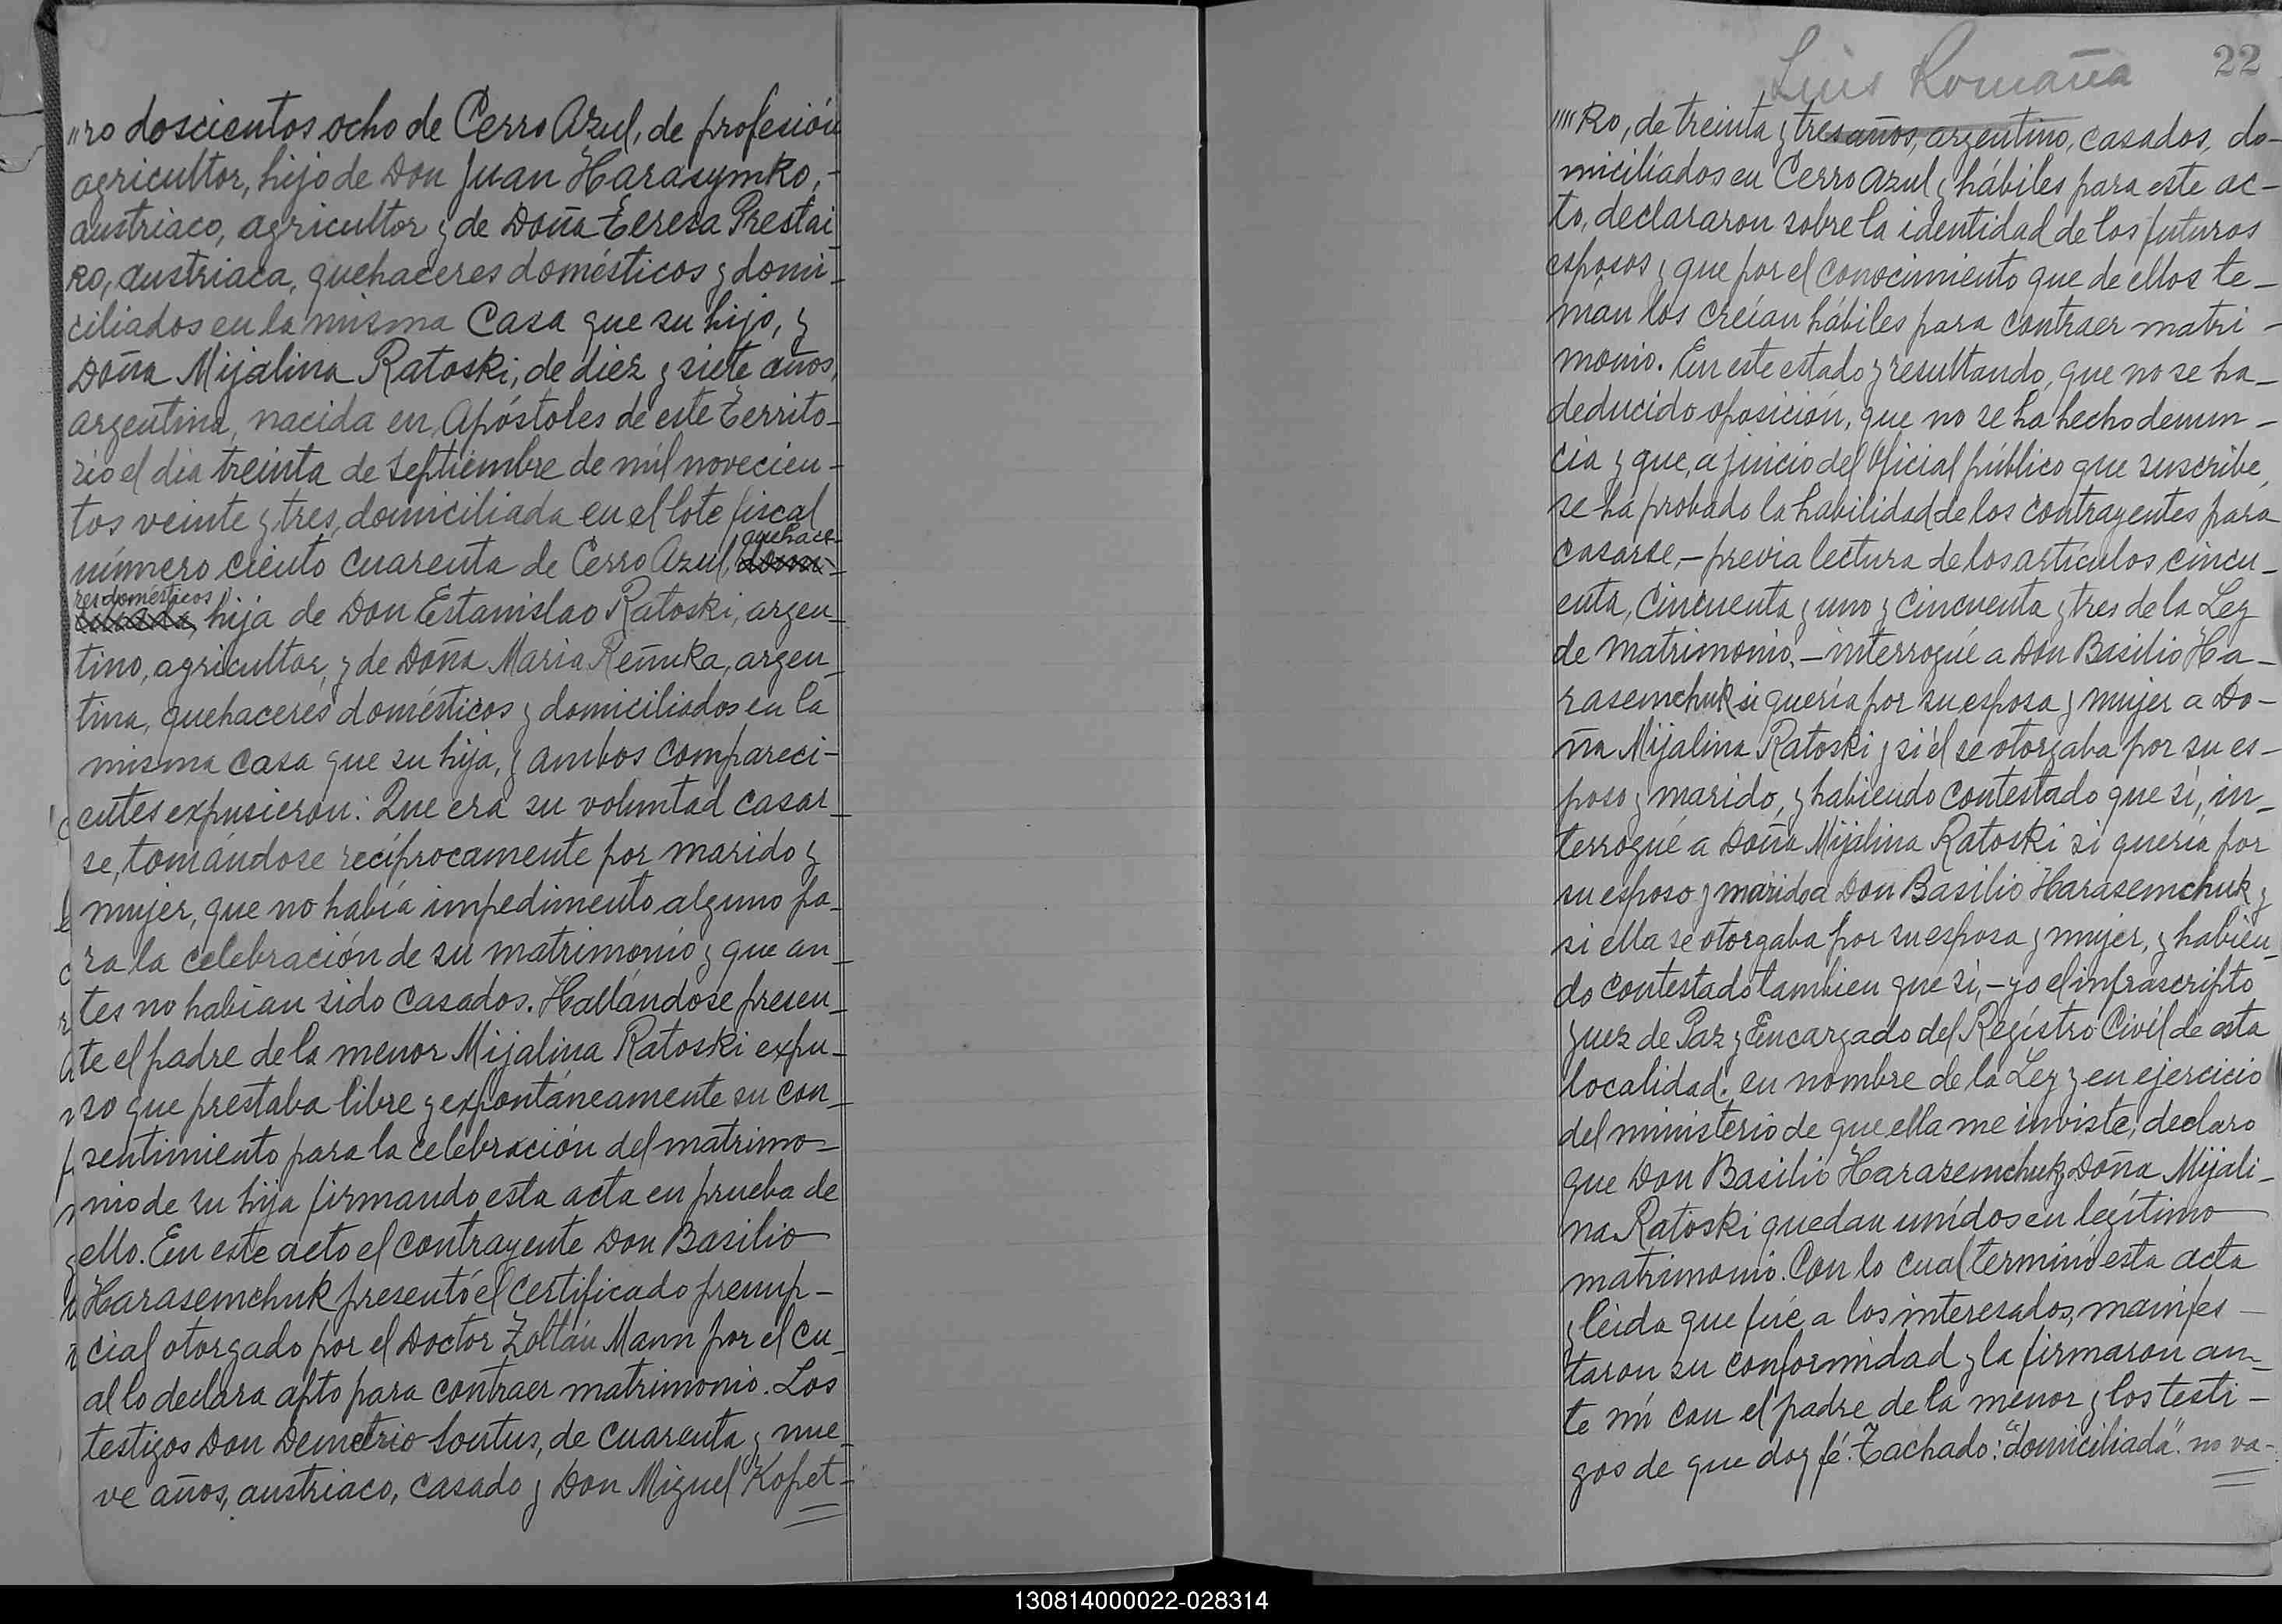 "ro doscientos ocho de Cerro Azul, de profesión
agricultor, hijo de Don Juan Harasymko,-
austriaco, agricultor y de Doña Teresa Prestai
ko, austriaca, quehaceres domésticos y domi-
ciliados en la misma Casa que su hijo, y
Doña Mijalina Ratoski, de diez y siete años,
argentina, nacida en Apóstoles de este Territo-
rio el dia treinta de Septiembre de mil novecien-
tos veinte y tres, domiciliada en el lote fiscal
quehace-
número ciento cuarenta de Cerro Azul, domi-
res domésticos
ciliada, hija de Don Estanislao Ratoski, argen-
tino, agricultor, y de Doña Maria Reñuka, argen-
tina, quehaceres domésticos y domiciliados en la
misma casa que su hija, y ambos compareci-
entes expusieron: Que era su voluntad casar-
se, tomándose recíprocamente por marido y
mujer, que no había impedimento alguno pa-
ra la celebración de su matrimonio y que an-
tes no habían sido casados. Hallándose presen-
te el padre de la menor Mijalina Ratoski expu-
so que prestaba libre y expontáneamente su con-
sentimiento para la celebración del matrimo-
nio de su hija firmando esta acta en prueba de
ello. En este acto el contrayente Don Basilio
Harasemchuk presentó el certificado prenup-
cial otorgado por el Doctor Zoltán Mann por el cu-
al lo declara apto para contraer matrimonio. Los
testigos Don Demetrio Soutus, de cuarenta y nue-
ve años, austriaco, casado y Don Miguel Kopet-
Luis Romaña
22
""ko, de treinta y tres años, argentino, casados, do-
miciliados en Cerro Azul y hábiles para este ac-
to, declararon sobre la identidad de los futuros
esposos y que por el conocimiento que de ellos te-
nían los creían hábiles para contraer matri-
monio. En este estado y resultando, que no se ha-
deducido oposición, que no se ha hecho denun-
cia y que, a juicio del Oficial público que suscribe,
se ha probado la habilidad de los contrayentes para
casarse,- previa lectura de los artículos cincu-
enta, cincuenta y uno y cincuenta y tres de la Ley
de matrimonio,- interrogué a Don Basilio Ha-
rasemchuk si quería por su esposa y mujer a Do-
ña Mijalina Ratoski y si él se otorgaba por su es-
poso y marido, y habiendo contestado que si, in-
terrogué a Doña Mijalina Ratoski si quería por
su esposo y marido a Don Basilio Harasemchuk y
si ella se otorgaba por su esposa y mujer, y habien-
do contestado tambien que si,- yo el infrascripto
Juez de Paz y Encargado del Registro Civil de esta
localidad, en nombre de la Ley y en ejercicio
del ministerio de que ella me inviste, declaro
que Don Basilio Harasemchuk y Doña Mijali-
na Ratoski quedan unidos en legítimo
matrimonio. Con lo cual terminó esta acta
y leida que fué a los interesados, manifes-
taron su conformidad y la firmaron an-
te mí con el padre de la menor y los testi-
gos de que doy fé. Tachado: "domiciliada". no va-
130814000022-028314